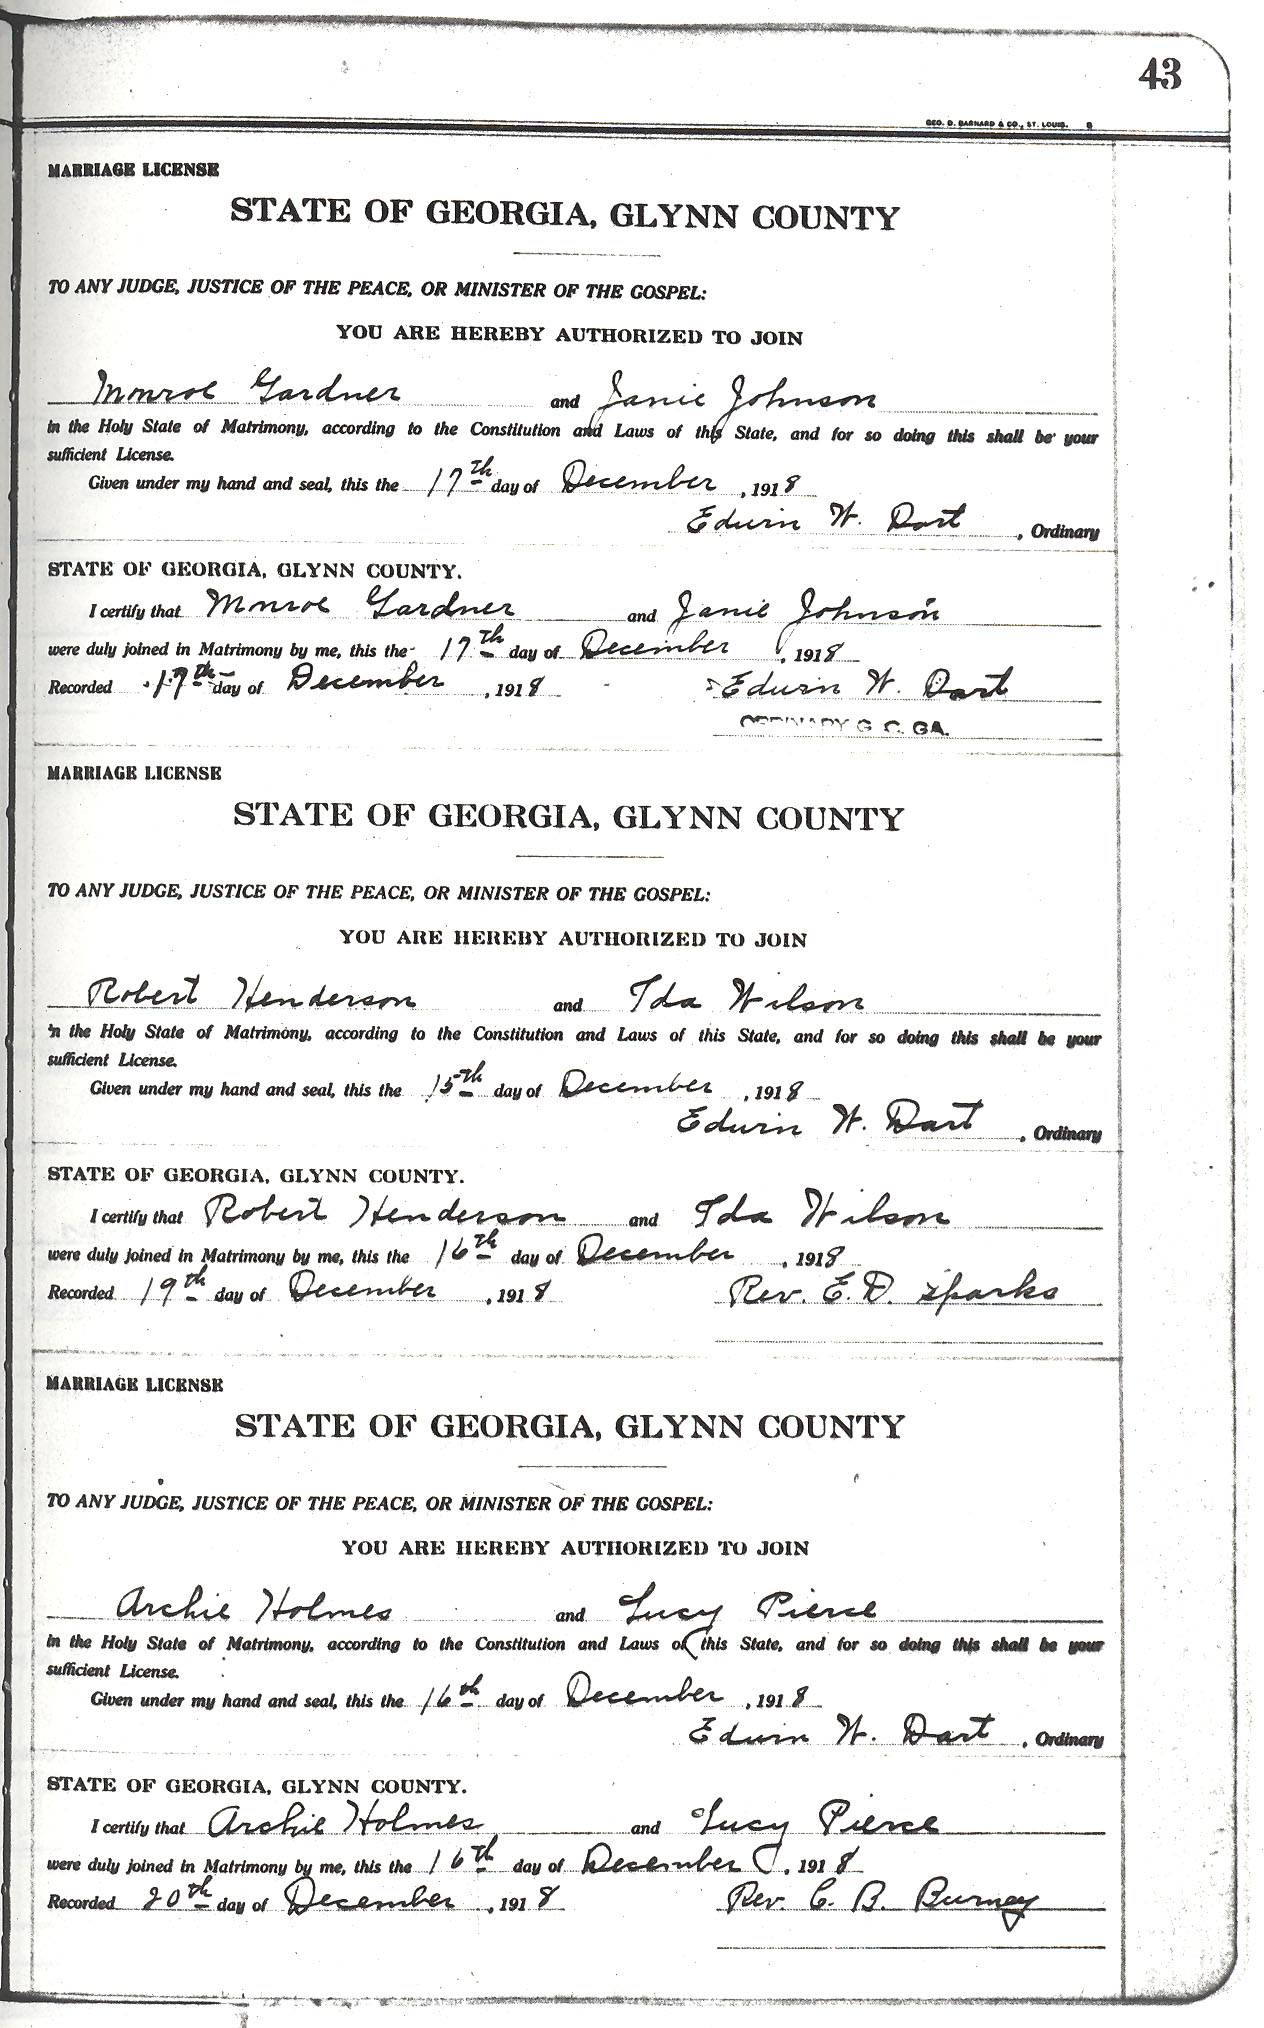 43
GEO. D. BARNARD & CO., ST. LOUIS. 8
MARRIAGE LICENSE
STATE OF GEORGIA, GLYNN COUNTY
TO ANY JUDGE, JUSTICE OF THE PEACE, OR MINISTER OF THE GOSPEL:
YOU ARE HEREBY AUTHORIZED TO JOIN
Monroe Gardner and Janie Johnson
in the Holy State of Matrimony, according to the Constitution and Laws of this State, and for so doing this shall be your
sufficient License.
Given under my hand and seal, this the 17th day of December, 1918
Edwin W. Dart, Ordinary
STATE OF GEORGIA, GLYNN COUNTY.
I certify that Monroe Gardner and Janie Johnson
were duly joined in Matrimony by me, this the 17th day of December, 1918
Recorded 17th day of December, 1918 Edwin W. Dart
ORDINARY G. C. GA.
MARRIAGE LICENSE
STATE OF GEORGIA, GLYNN COUNTY
TO ANY JUDGE, JUSTICE OF THE PEACE, OR MINISTER OF THE GOSPEL:
YOU ARE HEREBY AUTHORIZED TO JOIN
Robert Henderson and Ida Wilson
in the Holy State of Matrimony, according to the Constitution and Laws of this State, and for so doing this shall be your
sufficient License.
Given under my hand and seal, this the 15th day of December, 1918
Edwin W. Dart, Ordinary
STATE OF GEORGIA, GLYNN COUNTY.
I certify that Robert Henderson and Ida Wilson
were duly joined in Matrimony by me, this the 16th day of December, 1918
Recorded 19th day of December, 1918 Rev. E. D. Sparks
MARRIAGE LICENSE
STATE OF GEORGIA, GLYNN COUNTY
TO ANY JUDGE, JUSTICE OF THE PEACE, OR MINISTER OF THE GOSPEL:
YOU ARE HEREBY AUTHORIZED TO JOIN
Archie Holmes and Lucy Pierce
in the Holy State of Matrimony, according to the Constitution and Laws of this State, and for so doing this shall be your
sufficient License.
Given under my hand and seal, this the 16th day of December, 1918
Edwin W. Dart, Ordinary
STATE OF GEORGIA, GLYNN COUNTY.
I certify that Archie Holmes and Lucy Pierce
were duly joined in Matrimony by me, this the 16th day of December, 1918
Recorded 20th day of December, 1918 Rev. C. B. Burney